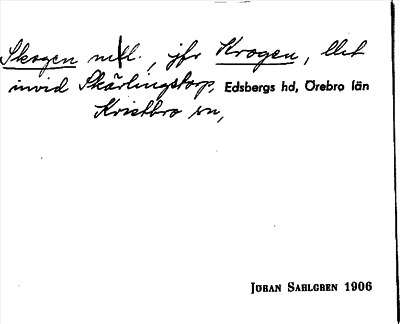 Skogen nedl., jfr Krogen, llet
invid Skärlingstorp, Edsbergs hd, Örebro län
Kvistbro sn,
JÖRAN SAHLGREN 1906